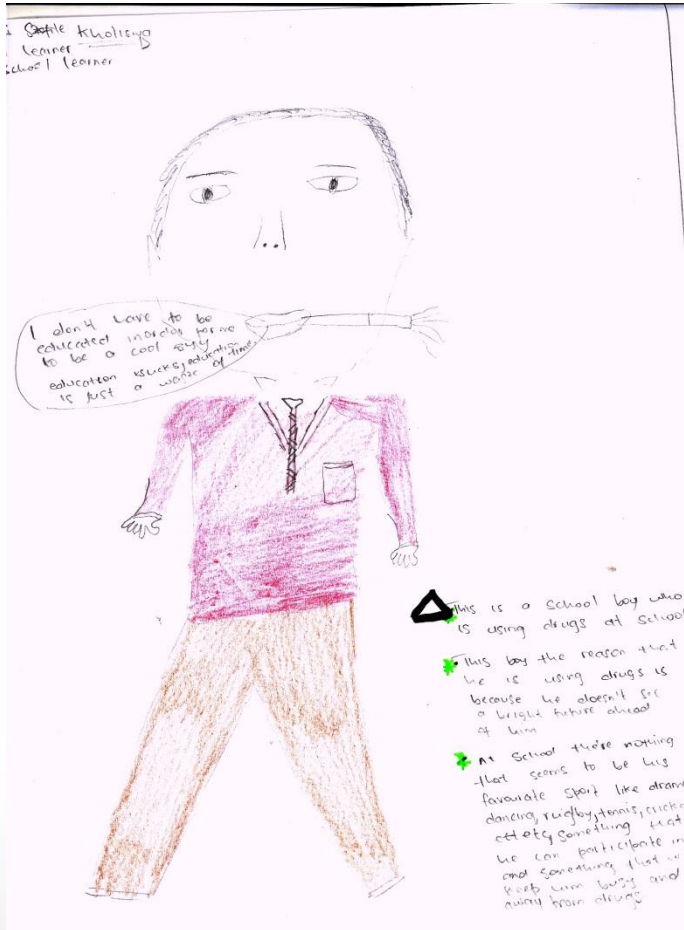 Kholiswa
learner
School learner
I don't have to be
educated inorder for me
to be a cool guy
education sucks, education
is just a waste of time
This is a school boy who
is using drugs at school
This boy the reason that
he is using drugs is
because he doesn't see
a bright future ahead
of him
At School there nothing
that seems to be his
favourate sport like drama
dancing, rugby, tennis, cricke
something that
he can participate in
and something that
keep him busy and
away from drugs